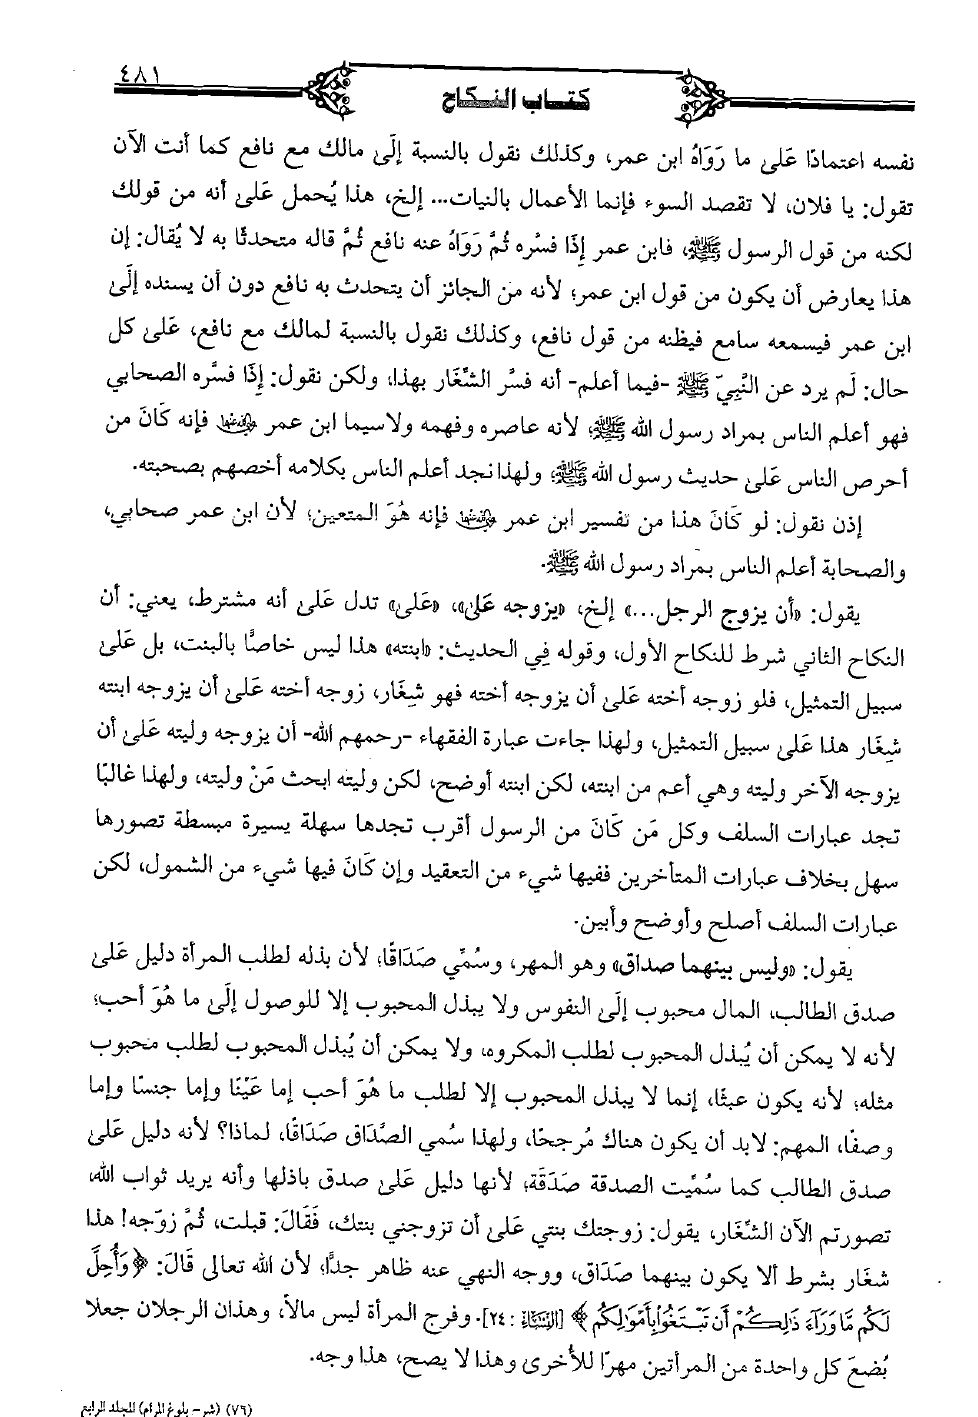 ٤٨١
كتاب النكاح
نفسه اعتمادًا عَلَى ما رَوَاهُ ابن عمر، وكذلك نقول بالنسبة إلَى مالك مع نافع كما أنت الآن
تقول: يا فلان، لا تقصد السوء فإنما الأعمال بالنيات... إلخ، هذا يُحمل عَلَى أنه من قولك
لكنه من قول الرسول ﷺ، فابن عمر إِذَا فسَّره ثُمَّ رَوَاهُ عنه نافع ثُمَّ قاله متحدثًا به لا يُقال: إن
هذا يعارض أن يكون من قول ابن عمر؛ لأنه من الجائز أن يتحدث به نافع دون أن يسنده إلَى
ابن عمر فيسمعه سامع فيظنه من قول نافع، وكذلك نقول بالنسبة لمالك مع نافع، عَلَى كل
حال: لَم يرد عن النَّبِيّ ﷺ -فيما أعلم- أنه فسَّر الشِّغَار بهذا، ولكن نقول: إِذَا فسَّره الصحابي
فهو أعلم الناس بمراد رسول الله ﷺ؛ لأنه عاصره وفهمه ولاسيما ابن عمر رضي الله عنهما فإنه كَانَ من
أحرص الناس عَلَى حديث رسول الله ﷺ ولهذا نجد أعلم الناس بكلامه أخصهم بصحبته.
إذن نقول: لو كَانَ هذا من تفسير ابن عمر رضي الله عنهما فإنه هُوَ المتعين؛ لأن ابن عمر صحابي،
والصحابة أعلم الناس بمراد رسول الله ﷺ.
يقول: «أن يزوج الرجل...» إلخ، «يزوجه عَلَى»، «عَلَى» تدل عَلَى أنه مشترط، يعني: أن
النكاح الثاني شرط للنكاح الأول، وقوله فِي الحديث: «ابنته» هذا ليس خاصًّا بالبنت، بل عَلَى
سبيل التمثيل، فلو زوجه أخته عَلَى أن يزوجه أخته فهو شِغَار، زوجه أخته عَلَى أن يزوجه ابنته
شِغَار هذا عَلَى سبيل التمثيل، ولهذا جاءت عبارة الفقهاء -رحمهم الله- أن يزوجه وليته عَلَى أن
يزوجه الآخر وليته وهي أعم من ابنته، لكن ابنته أوضح، لكن وليته ابحث مَنْ وليته، ولهذا غالبًا
تجد عبارات السلف وكل مَن كَانَ من الرسول أقرب تجدها سهلة يسيرة مبسطة تصورها
سهل بخلاف عبارات المتأخرين ففيها شيء من التعقيد وإن كَانَ فيها شيء من الشمول، لكن
عبارات السلف أصلح وأوضح وأبين.
يقول: «وليس بينهما صداق» وهو المهر، وسُمِّي صَدَاقًا؛ لأن بذله لطلب المرأة دليل عَلَى
صدق الطالب، المال محبوب إلَى النفوس ولا يبذل المحبوب إلا للوصول إلَى ما هُوَ أحب؛
لأنه لا يمكن أن يُبذل المحبوب لطلب المكروه، ولا يمكن أن يُبذل المحبوب لطلب محبوب
مثله؛ لأنه يكون عبثًا، إنما لا يبذل المحبوب إلا لطلب ما هُوَ أحب إما عَيْنًا وإما جنسًا وإما
وصفًا، المهم: لابد أن يكون هناك مُرجحًا، ولهذا سُمي الصَّدَاق صَدَاقًا، لماذا؟ لأنه دليل عَلَى
صدق الطالب كما سُمِّيت الصدقة صَدَقَة؛ لأنها دليل عَلَى صدق باذلها وأنه يريد ثواب الله،
تصورتم الآن الشِّغَار، يقول: زوجتك بنتي عَلَى أن تزوجني بنتك، فَقَالَ: قبلت، ثُمَّ زوّجه! هذا
شغار بشرط ألا يكون بينهما صَدَاق، ووجه النهي عنه ظاهر جدًّا؛ لأن الله تعالى قَالَ: ﴿وَأُحِلَّ
لَكُم مَّا وَرَآءَ ذَٰلِكُمْ أَن تَبْتَغُوا بِأَمْوَٰلِكُم﴾ [النساء: ٢٤]. وفرج المرأة ليس مالاً، وهذان الرجلان جعلا
بُضعَ كل واحدة من المرأتين مهرًا للأخرى وهذا لا يصح، هذا وجه.
(٧٦) (شر- بلوغ المرام) المجلد الرابع